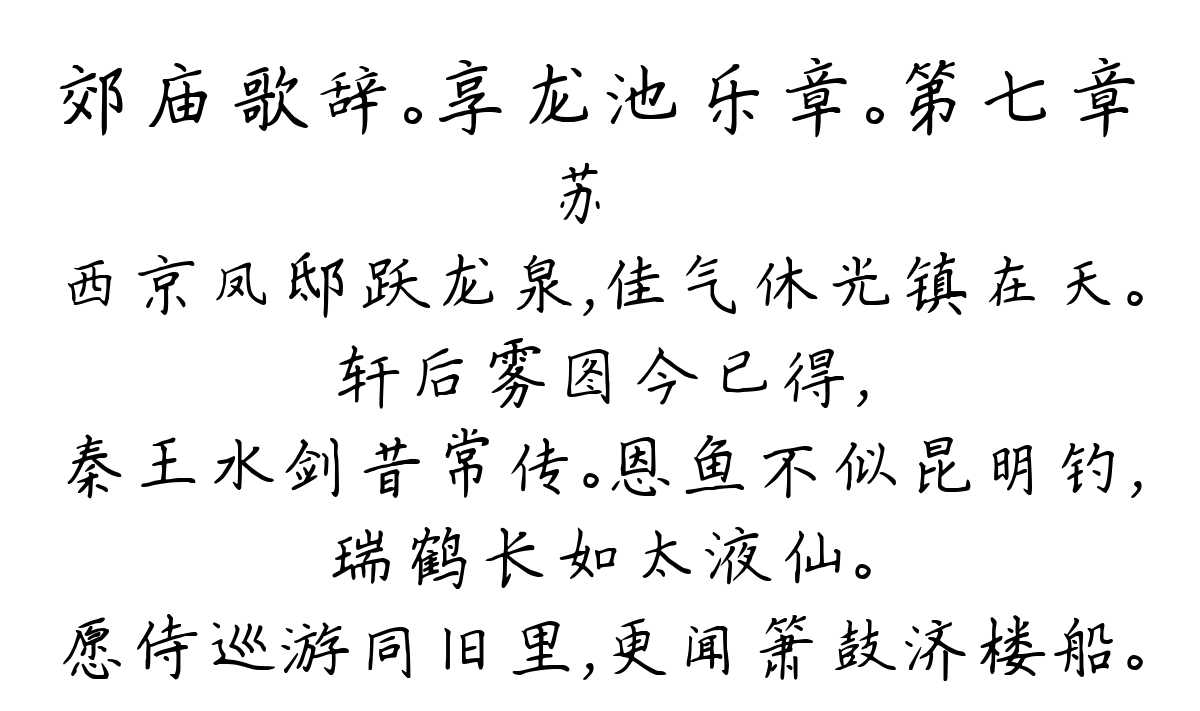 郊庙歌辞。享龙池乐章。第七章
苏
西京凤邸跃龙泉,佳气休光镇在天。
轩后雾图今已得,
秦王水剑昔常传。恩鱼不似昆明钓,
瑞鹤长如太液仙。
愿侍巡游同旧里,更闻箫鼓济楼船。